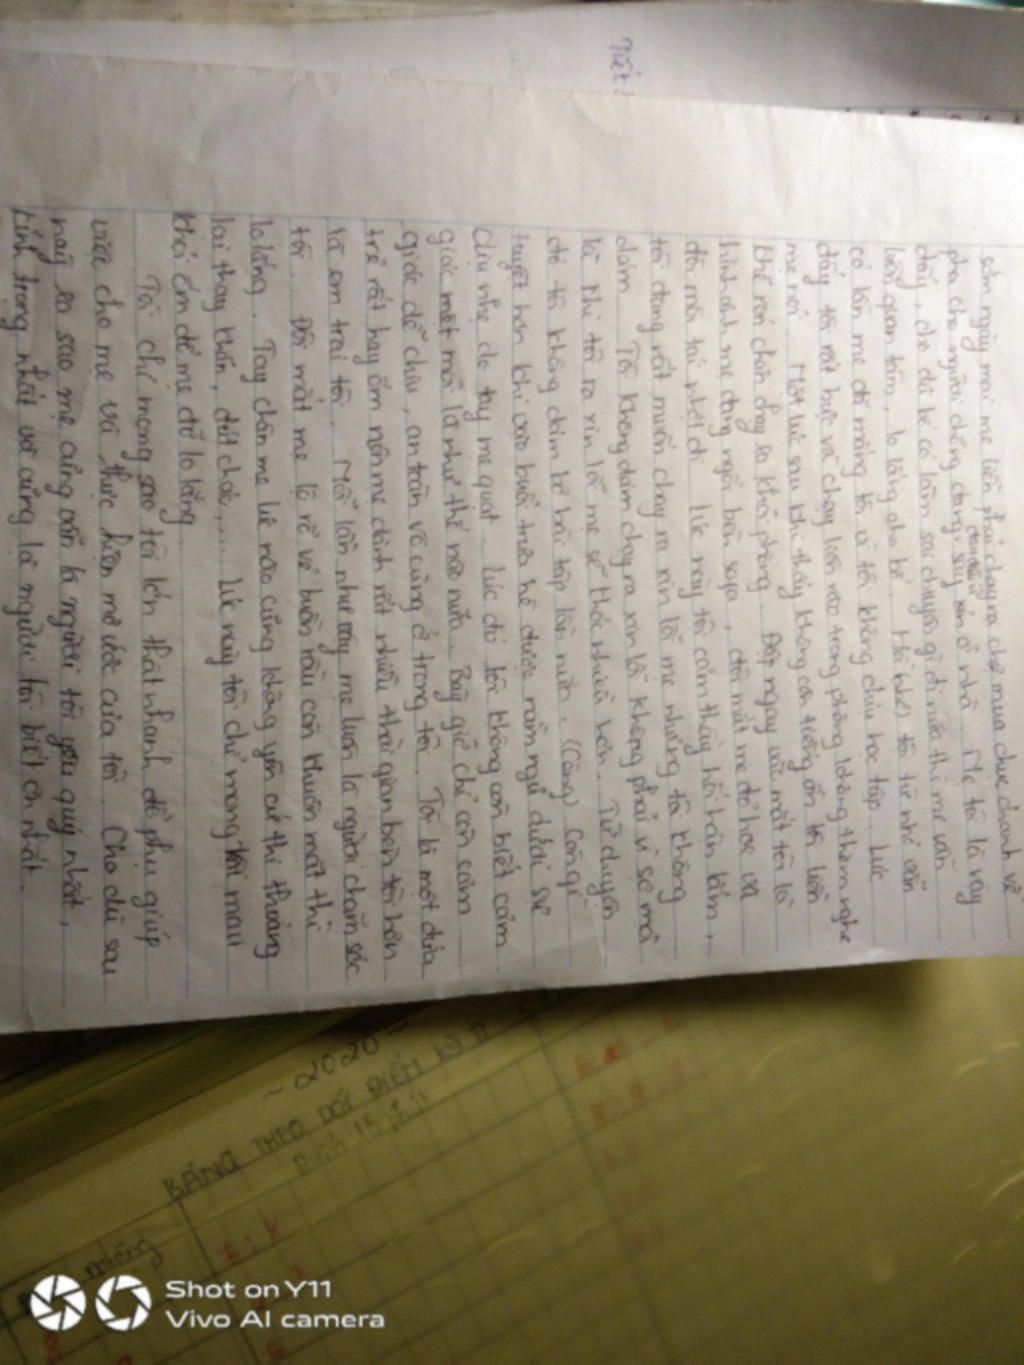 sớm ngày mai mẹ liền phải chạy ra chợ mua chục chanh về
pha cho người chồng đang say xỉn ở nhà. Mẹ tôi là vậy
đấy, cho dù bố có làm sai chuyện gì đi nữa thì mẹ vẫn
luôn quan tâm, lo lắng cho bố. tôi từ nhỏ vẫn
có lần mẹ đã mắng tôi vì tôi không chịu học tập. Lúc
đấy tôi rất bực và chạy luôn vào trong phòng không thèm nghe
mẹ nói. Một lúc sau khi thấy không còn tiếng ồn tôi liền
khẽ rón chân chạy ra khỏi phòng. Đập ngay vào mắt tôi là
hình ảnh mẹ đang ngồi bên sopa, đôi mắt mẹ đỏ hoe và
đôi môi tái nhợt đi. Lúc này tôi cảm thấy hối hận lắm,
tôi đang rất muốn chạy ra xin lỗi mẹ nhưng tôi không
dám. Tôi không dám chạy ra xin lỗi không phải vì sợ mà
là khi tôi ra xin lỗi mẹ sẽ khóc nhiều hơn. Từ chuyện
đó tôi không dám bỏ bài tập lần nữa. (Cũng) Còn gì
tuyệt hơn khi vào buổi trưa hè được nằm ngủ dưới sự
dịu nhẹ do tay mẹ quạt. Lúc đó tôi không còn biết cảm
giác mệt mỏi là như thế nào nữa. Bây giờ chỉ còn cảm
giác dễ chịu, an toàn vô cùng ở trong tôi. Tôi là một đứa
trẻ rất hay ốm nên mẹ dành rất nhiều thời gian bên tôi hơn
là em trai tôi. Mỗi lần như vậy mẹ luôn là người chăm sóc
tôi. Đôi mắt mẹ lộ rõ vẻ buồn rầu còn khuôn mặt thì
lo lắng. Tay chân mẹ lúc nào cũng không yên cứ thi thoảng
lại thay khăn, đút cháo,... Lúc này tôi chỉ mong tôi mau
khỏi ốm để mẹ đỡ lo lắng
Tôi chỉ mong sao tôi lớn thật nhanh để phụ giúp
việc cho mẹ và thực hiện mơ ước của tôi. Cho dù sau
này ra sao mẹ cũng vẫn là người tôi yêu quý nhất,
kính trọng nhất và cũng là người tôi biết ơn nhất.
Tiết
~ 2020 ~
BẢNG THEO DÕI ĐIỂM KỲ II
Điểm 15 phút
miệng
Shot on Y11
Vivo AI camera